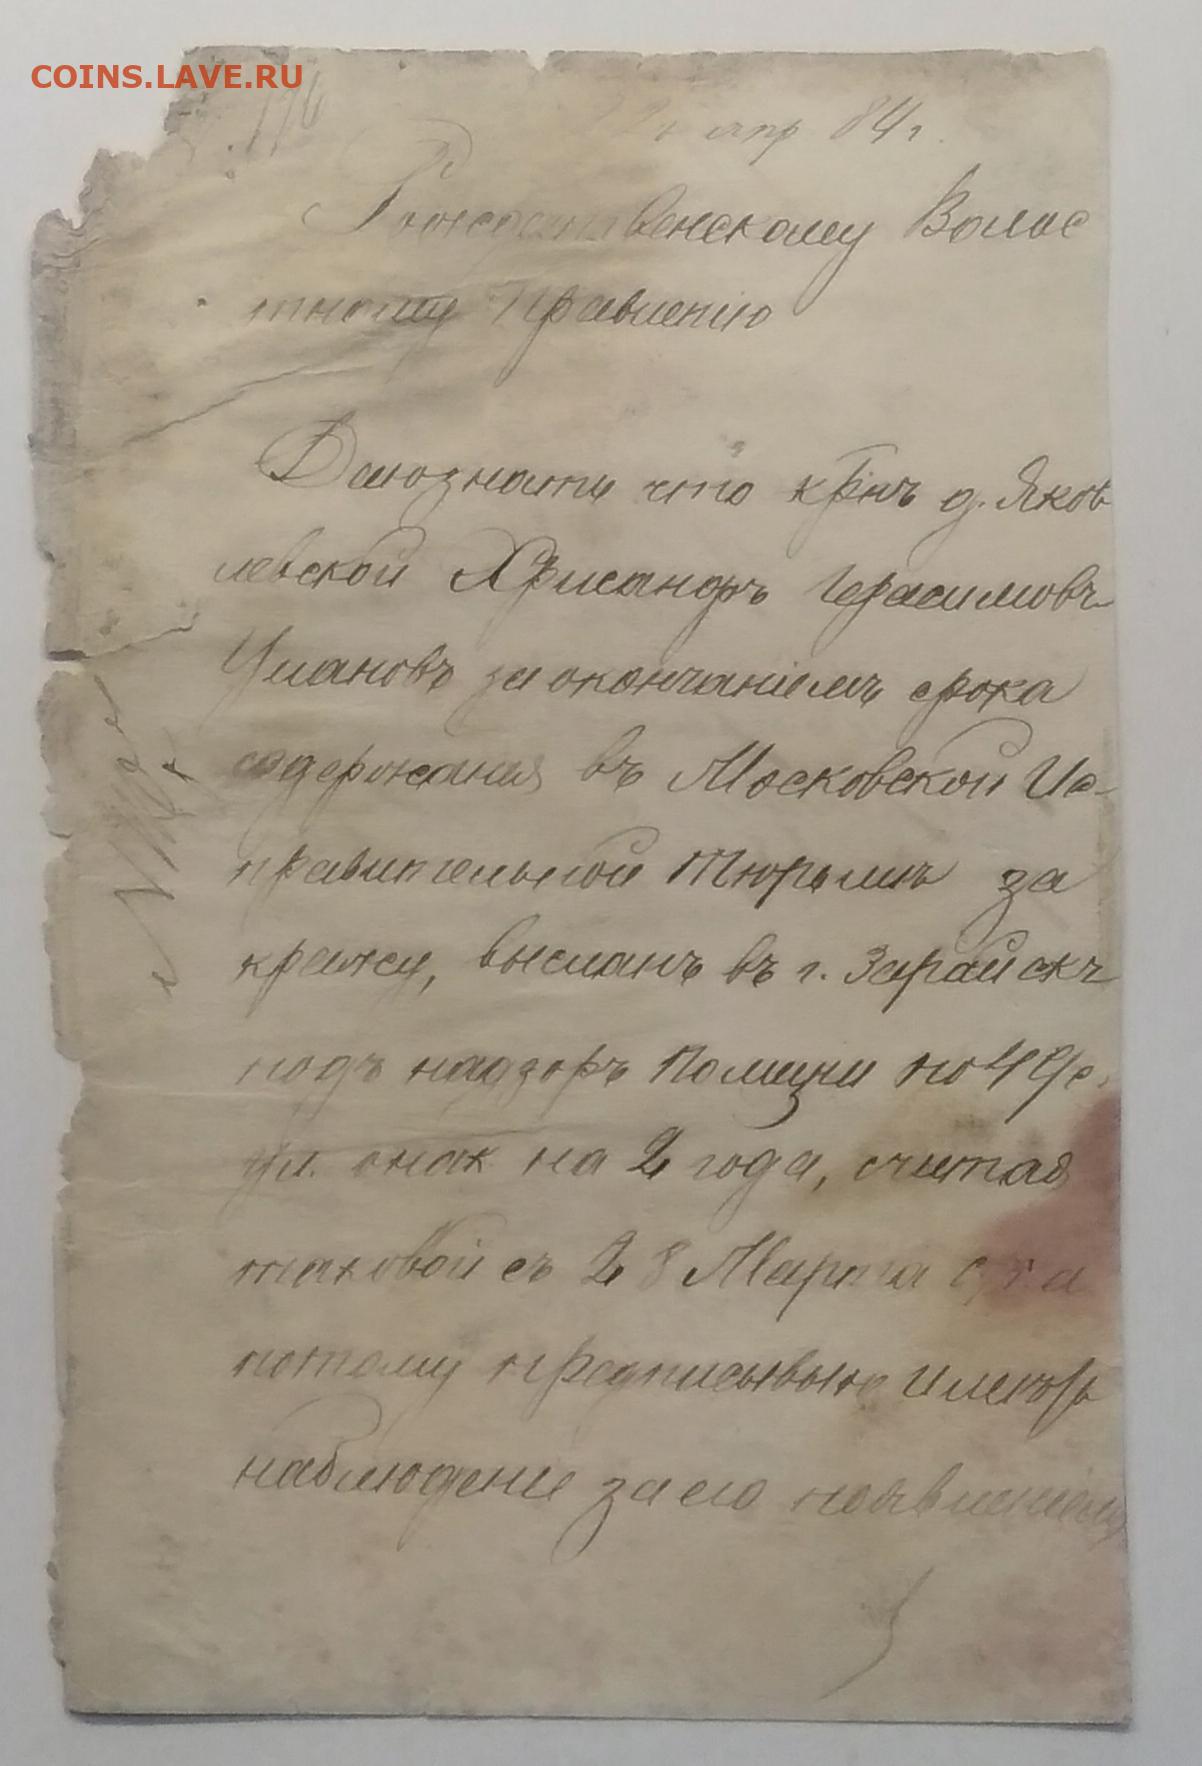 COINS.LAVE.RU
176
апр 84 г.
Рождественскому Волос
тному Правленію
Даю знать что кр-нъ д. Яков
левской Хрисанфъ Герасимовъ
Улановъ за окончаніемъ срока
содержания въ Московской Ис-
правительной Тюрьмѣ за
кражу, высланъ въ г. Зарайскъ
подъ надзоръ Полиціи по 49 с.
ул. о нак на 2 года, считая
таковой съ 28 Марта с. г. а
потому предписываю имѣть
наблюдение за его появленіемъ